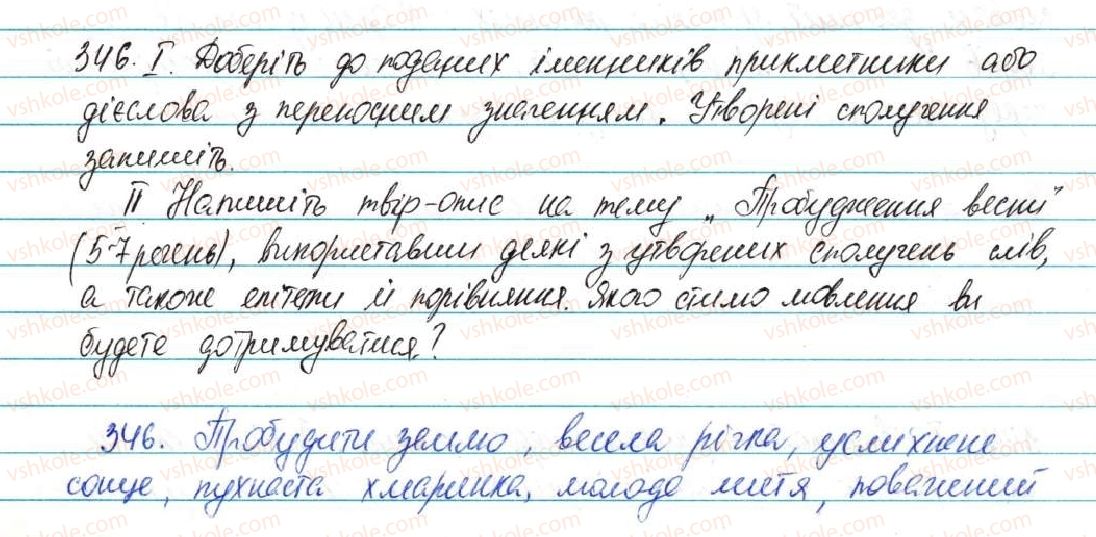 346. I. Доберіть до поданих іменників прикметники або
дієслова з переносним значенням. Утворені сполучення
запишіть.
II Напишіть твір-опис на тему „Пробудження весни"
(5-7 речень), використавши деякі з утворених сполучень слів,
а також епітети й порівняння. Якого стилю мовлення ви
будете дотримуватися?
346. Пробудити землю, весела річка, усміхнене
сонце, пухнаста хмаринка, молоде листя, поважний